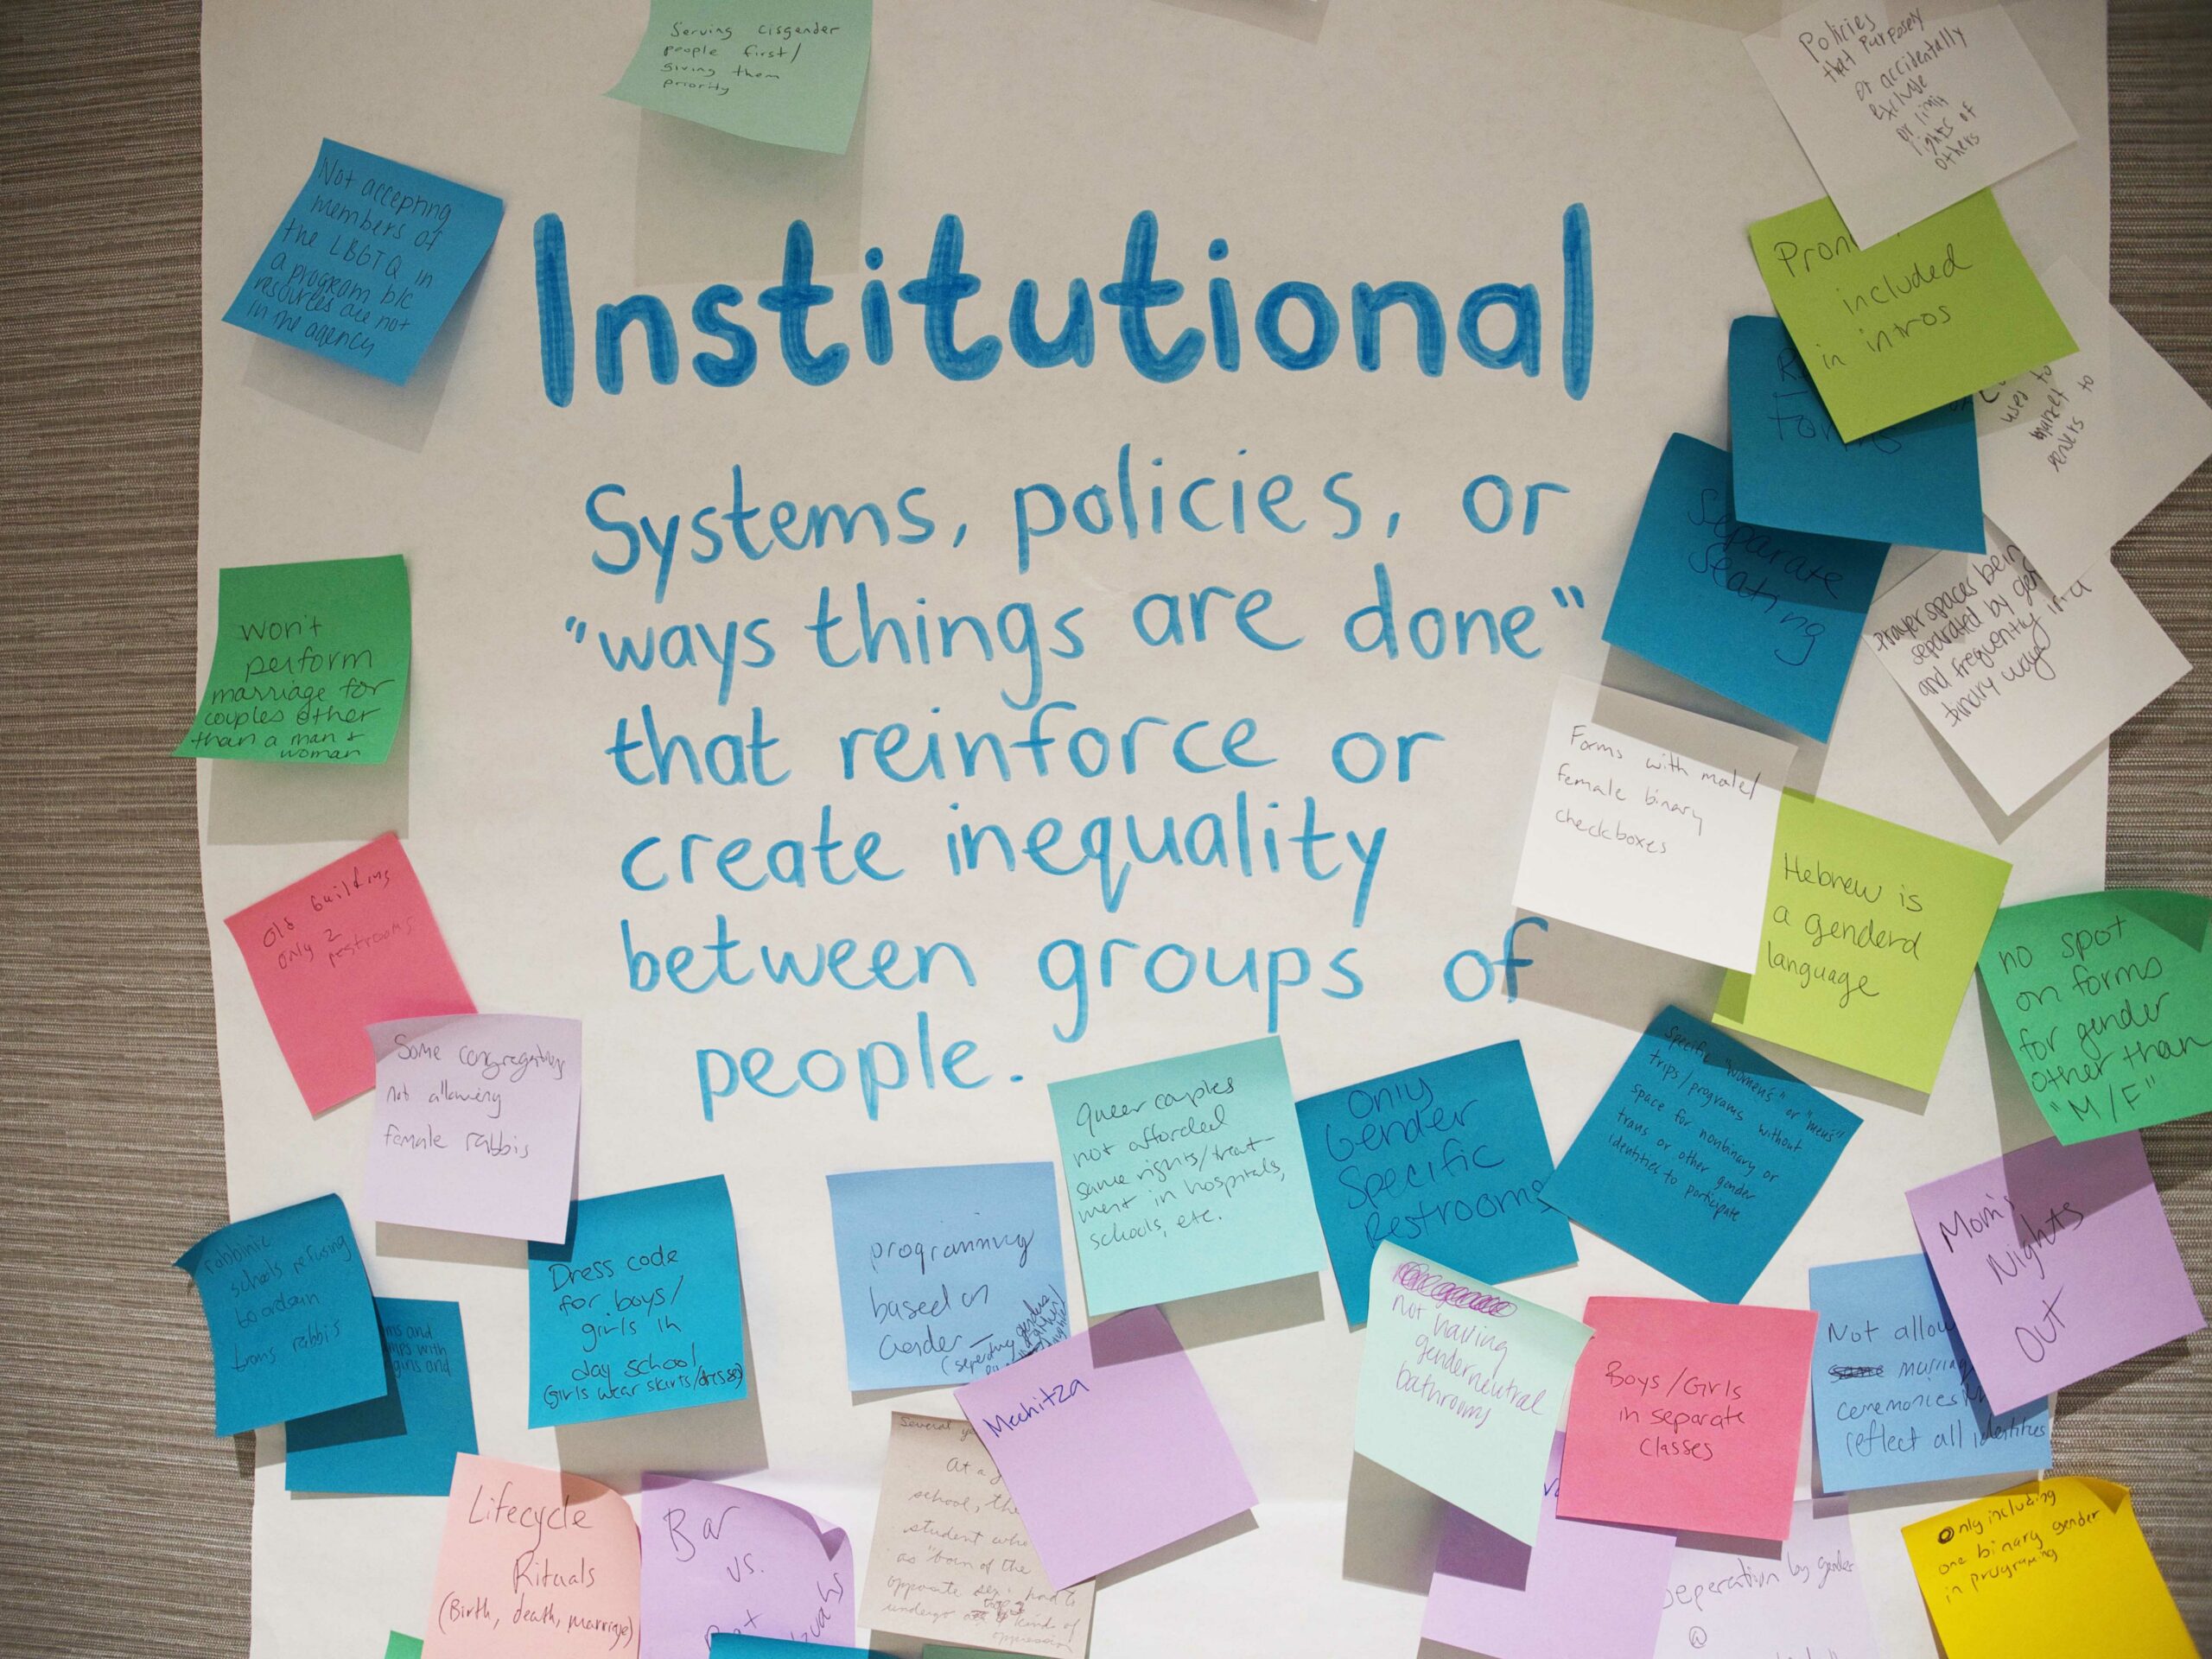 Serving cisgender
people first/
giving them
priority
Policies
that purposely
or accidentally
exclude
or limit
rights of
others
Not accepting
members of
the LBGTQ in
a program b/c
resources are not
in the agency
Institutional
Systems, policies, or
"ways things are done"
that reinforce or
create inequality
between groups of
people.
included
in intros
uses to
market to
Separate
Seating
prayer spaces
separated by
and frequently in a
binary way
won't
perform
marriage for
couples other
than a man +
woman
Forms with male/
female binary
checkboxes
Hebrew is
a genderd
language
no spot
on forms
for gender
other than
"M/F"
Old building
only 2
restrooms
Some
not allowing
female rabbis
Queer couples
not afforded
same rights/treat-
ment in hospitals,
schools, etc.
Only
Gender
Specific
Restrooms
Specific "women's" or "mens"
trips/programs without
space for nonbinary or
trans or other gender
identities to participate
Mom's
Nights
Out
rabbinic
schools refusing
to ordain
trans rabbis
and
with
girls and
Dress code
for boys/
girls in
day school
(Girls wear skirts/dresses)
programming
based on
Gender
Mechitza
not having
genderneutral
bathrooms
Boys/Girls
in separate
classes
Not
ceremonies
reflect all identities
Lifecycle
Rituals
(Birth, death, marriage)
Bar
vs.
Several
At a
school, the
student who
as "born of the
opposite sex" had to
undergo kinds of
oppression
by gender
@
Only including
one binary gender
in programming